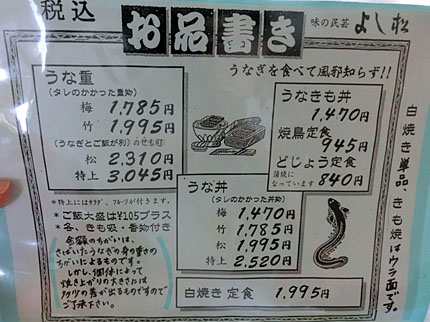 税込
お品書き
味の民芸 よし松
うなぎを食べて風邪知らず!!
うな重
(タレのかかった重物)
梅 1,785円
竹 1,995円
(うなぎとご飯が別)のせも可
松 2,310円
特上 3,045円
*特上にはサラダ、フルーツが付きます。
*ご飯大盛は¥105プラス
*各、きも吸・香物付き
金額のちがいは、
さばいたうなぎの身の重さの
ちがいによるものです。
しかし、個体によって
焼き上がりの大きさには
多少の差が出るものですので
ご了承下さい。
うなきも丼
1,470円
焼鳥定食
945円
どじょう定食
蒲焼に
なっています
840円
うな丼
(タレのかかった丼物)
梅 1,470円
竹 1,785円
松 1,995円
特上 2,520円
白焼き 定食 1,995円
白焼き単品、きも焼はウラ面です。